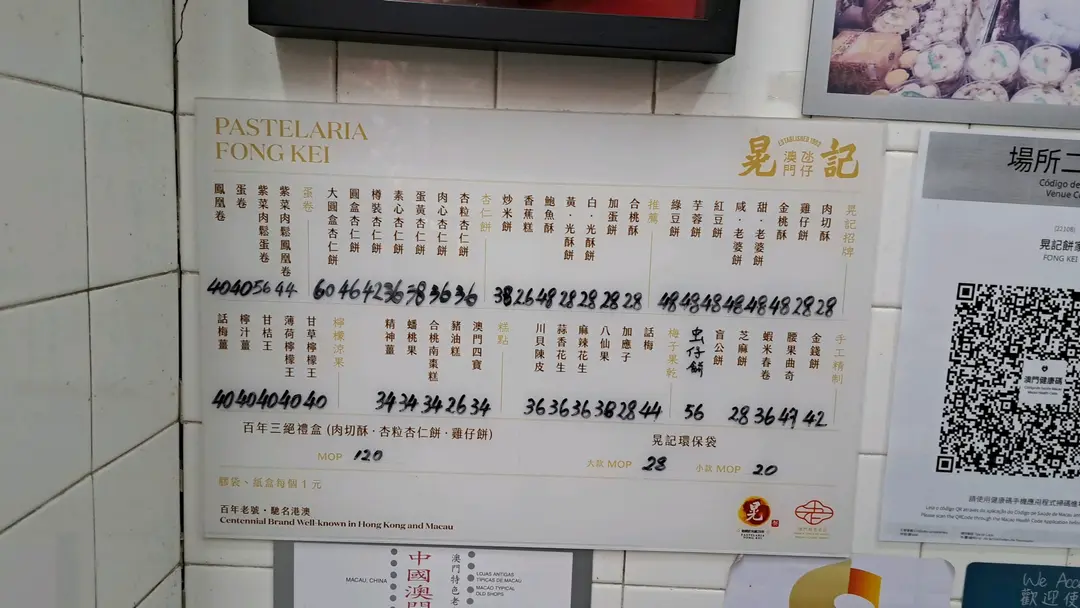 PASTELARIA
FONG KEI
ESTABLISHED 1902
晃 澳門氹仔 記
晃記招牌
肉切酥 28
雞仔餅 28
金桃酥 48
甜·老婆餅 48
咸·老婆餅 48
紅豆餅 48
芋蓉餅 48
綠豆餅 48
推薦
合桃酥 28
加蛋餅 28
白·光酥餅 28
黃·光酥餅 28
鮑魚酥 48
香蕉糕 26
炒米餅 38
杏仁餅
杏粒杏仁餅 36
肉心杏仁餅 36
蛋黃杏仁餅 38
素心杏仁餅 36
樽裝杏仁餅 42
圓盒杏仁餅 46
大圓盒杏仁餅 60
蛋卷
紫菜肉鬆鳳凰卷 44
紫菜肉鬆蛋卷 56
蛋卷 40
鳳凰卷 40
手工精制
金錢餅 42
腰果曲奇
蝦米春卷 36
芝麻餅 28
盲公餅
虫仔餅 56
梅子果乾
話梅 44
加應子 28
八仙果 38
麻辣花生 36
蒜香花生 36
川貝陳皮 36
糕點
澳門四寶 34
豬油糕 26
合桃南棗糕 34
蟠桃果 34
精神薑 34
檸檬涼果
甘草檸檬王 40
薄荷檸檬王 40
甘桔王 40
檸汁薑 40
話梅薑 40
百年三絕禮盒 (肉切酥·杏粒杏仁餅·雞仔餅)
MOP 120
晃記環保袋
大款 MOP 28 小款 MOP 20
膠袋、紙盒每個 1 元
百年老號·馳名港澳
Centennial Brand Well-known in Hong Kong and Macau
晃
PASTELARIA
FONG KEI
場所二
Código de
Venue C
晃記餅家
FONG KEI
澳門健康碼
MACAU, CHINA
中國澳門
澳門特色老
LOJAS ANTIGAS
TÍPICAS DE MACAU
MACAO TYPICAL
OLD SHOPS
We Acc
歡迎使